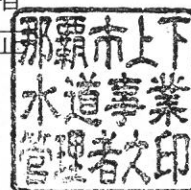 那覇市上下
水道事業
管理者之印